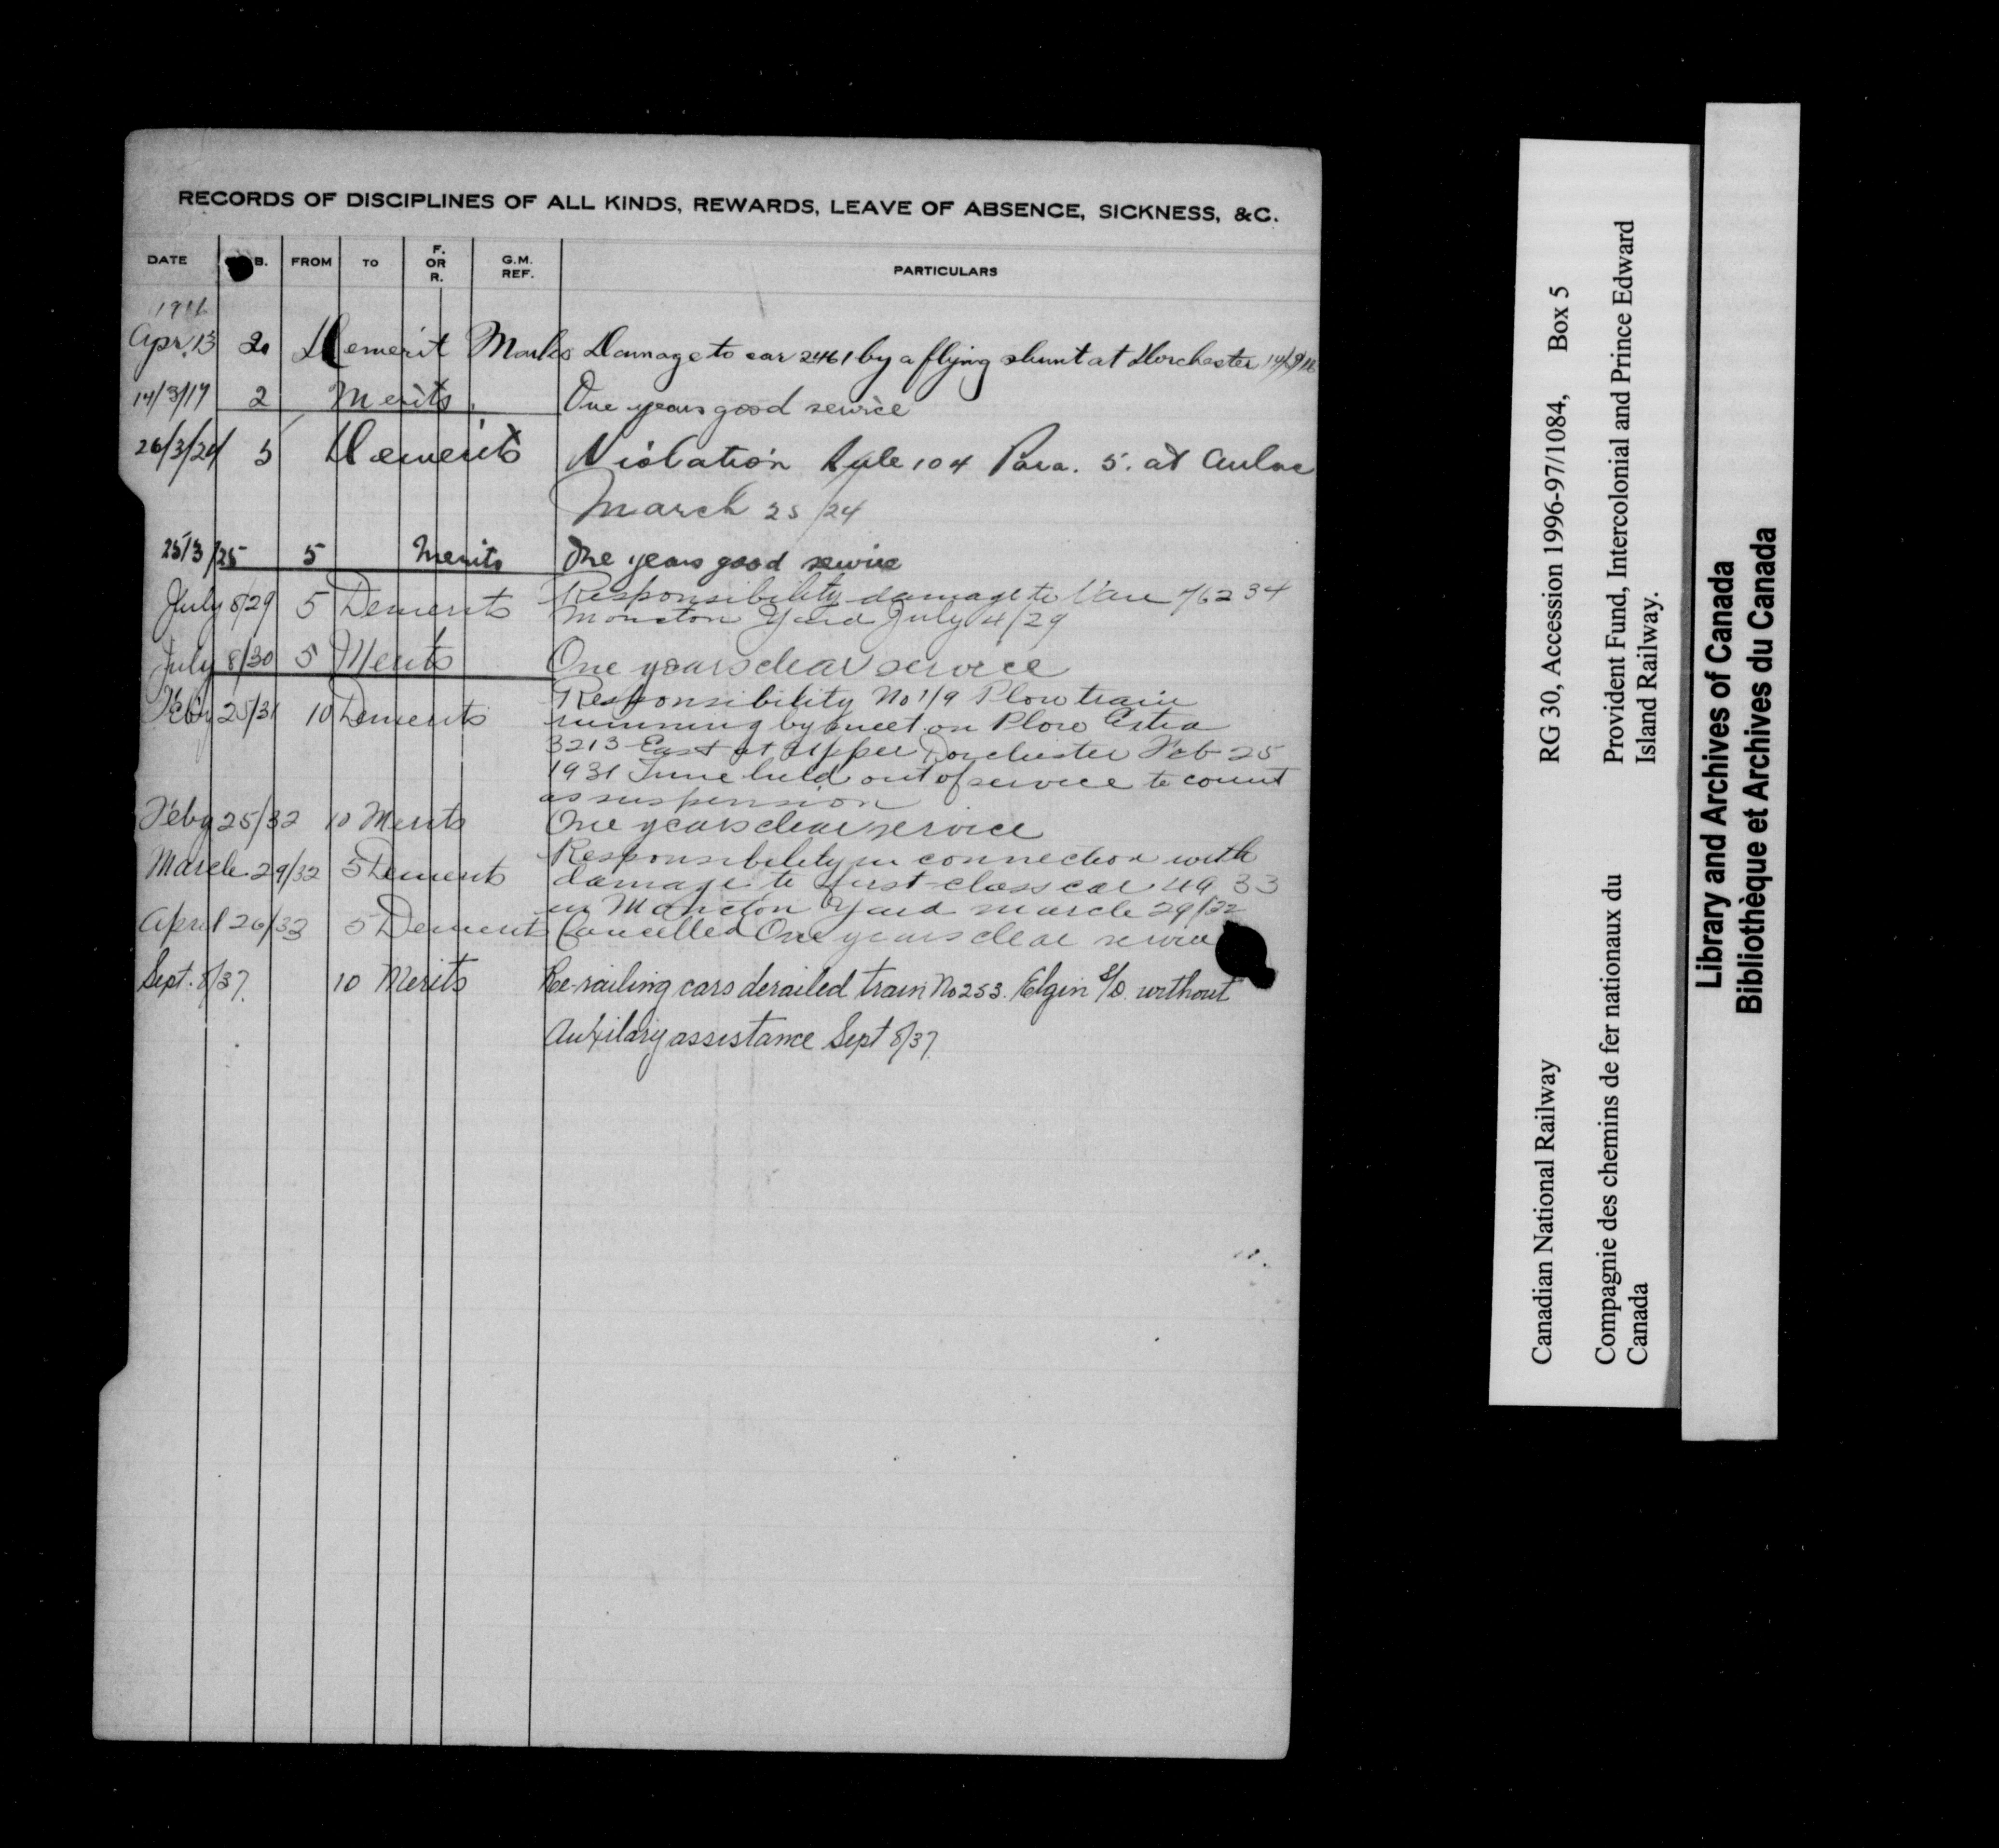 RECORDS OF DISCIPLINES OF ALL KINDS, REWARDS, LEAVE OF ABSENCE, SICKNESS, &C.
DATE B. FROM TO F. OR R. G.M. REF. PARTICULARS
1916
Apr. 13 2 Demerit Marks Damage to car 2461 by a flying shunt at Dorchester
14/3/17 2 Merits. One years good service
26/3/24 5 Demerits Violation Rule 104 Para. 5. at Aulac
March 25/24
25/3/25 5 Merits One years good service
July 8/29 5 Demerits Responsibility damage to Van 76234
Moncton Yard July 4/29
July 8/30 5 Merits One years clear service
Feby 25/31 10 Demerits Responsibility No 1/9 Plow train
running by meet on Plow Extra
3213 East at Upper Dorchester Feb 25
1931 Time held out of service to count
as suspension
Feby 25/32 10 Merits One years clear service
March 29/32 5 Demerits Responsibility in connection with
damage to first-class car 4933
in Moncton Yard March 29/32
April 26/33 5 Demerits Cancelled One years clear service
Sept. 8/37. 10 Merits Re-railing cars derailed train No 253. Elgin S/D. without
Auxilary assistance Sept 8/37.
Canadian National Railway RG 30, Accession 1996-97/1084, Box 5
Compagnie des chemins de fer nationaux du Canada
Provident Fund, Intercolonial and Prince Edward Island Railway.
Library and Archives of Canada
Bibliothèque et Archives du Canada